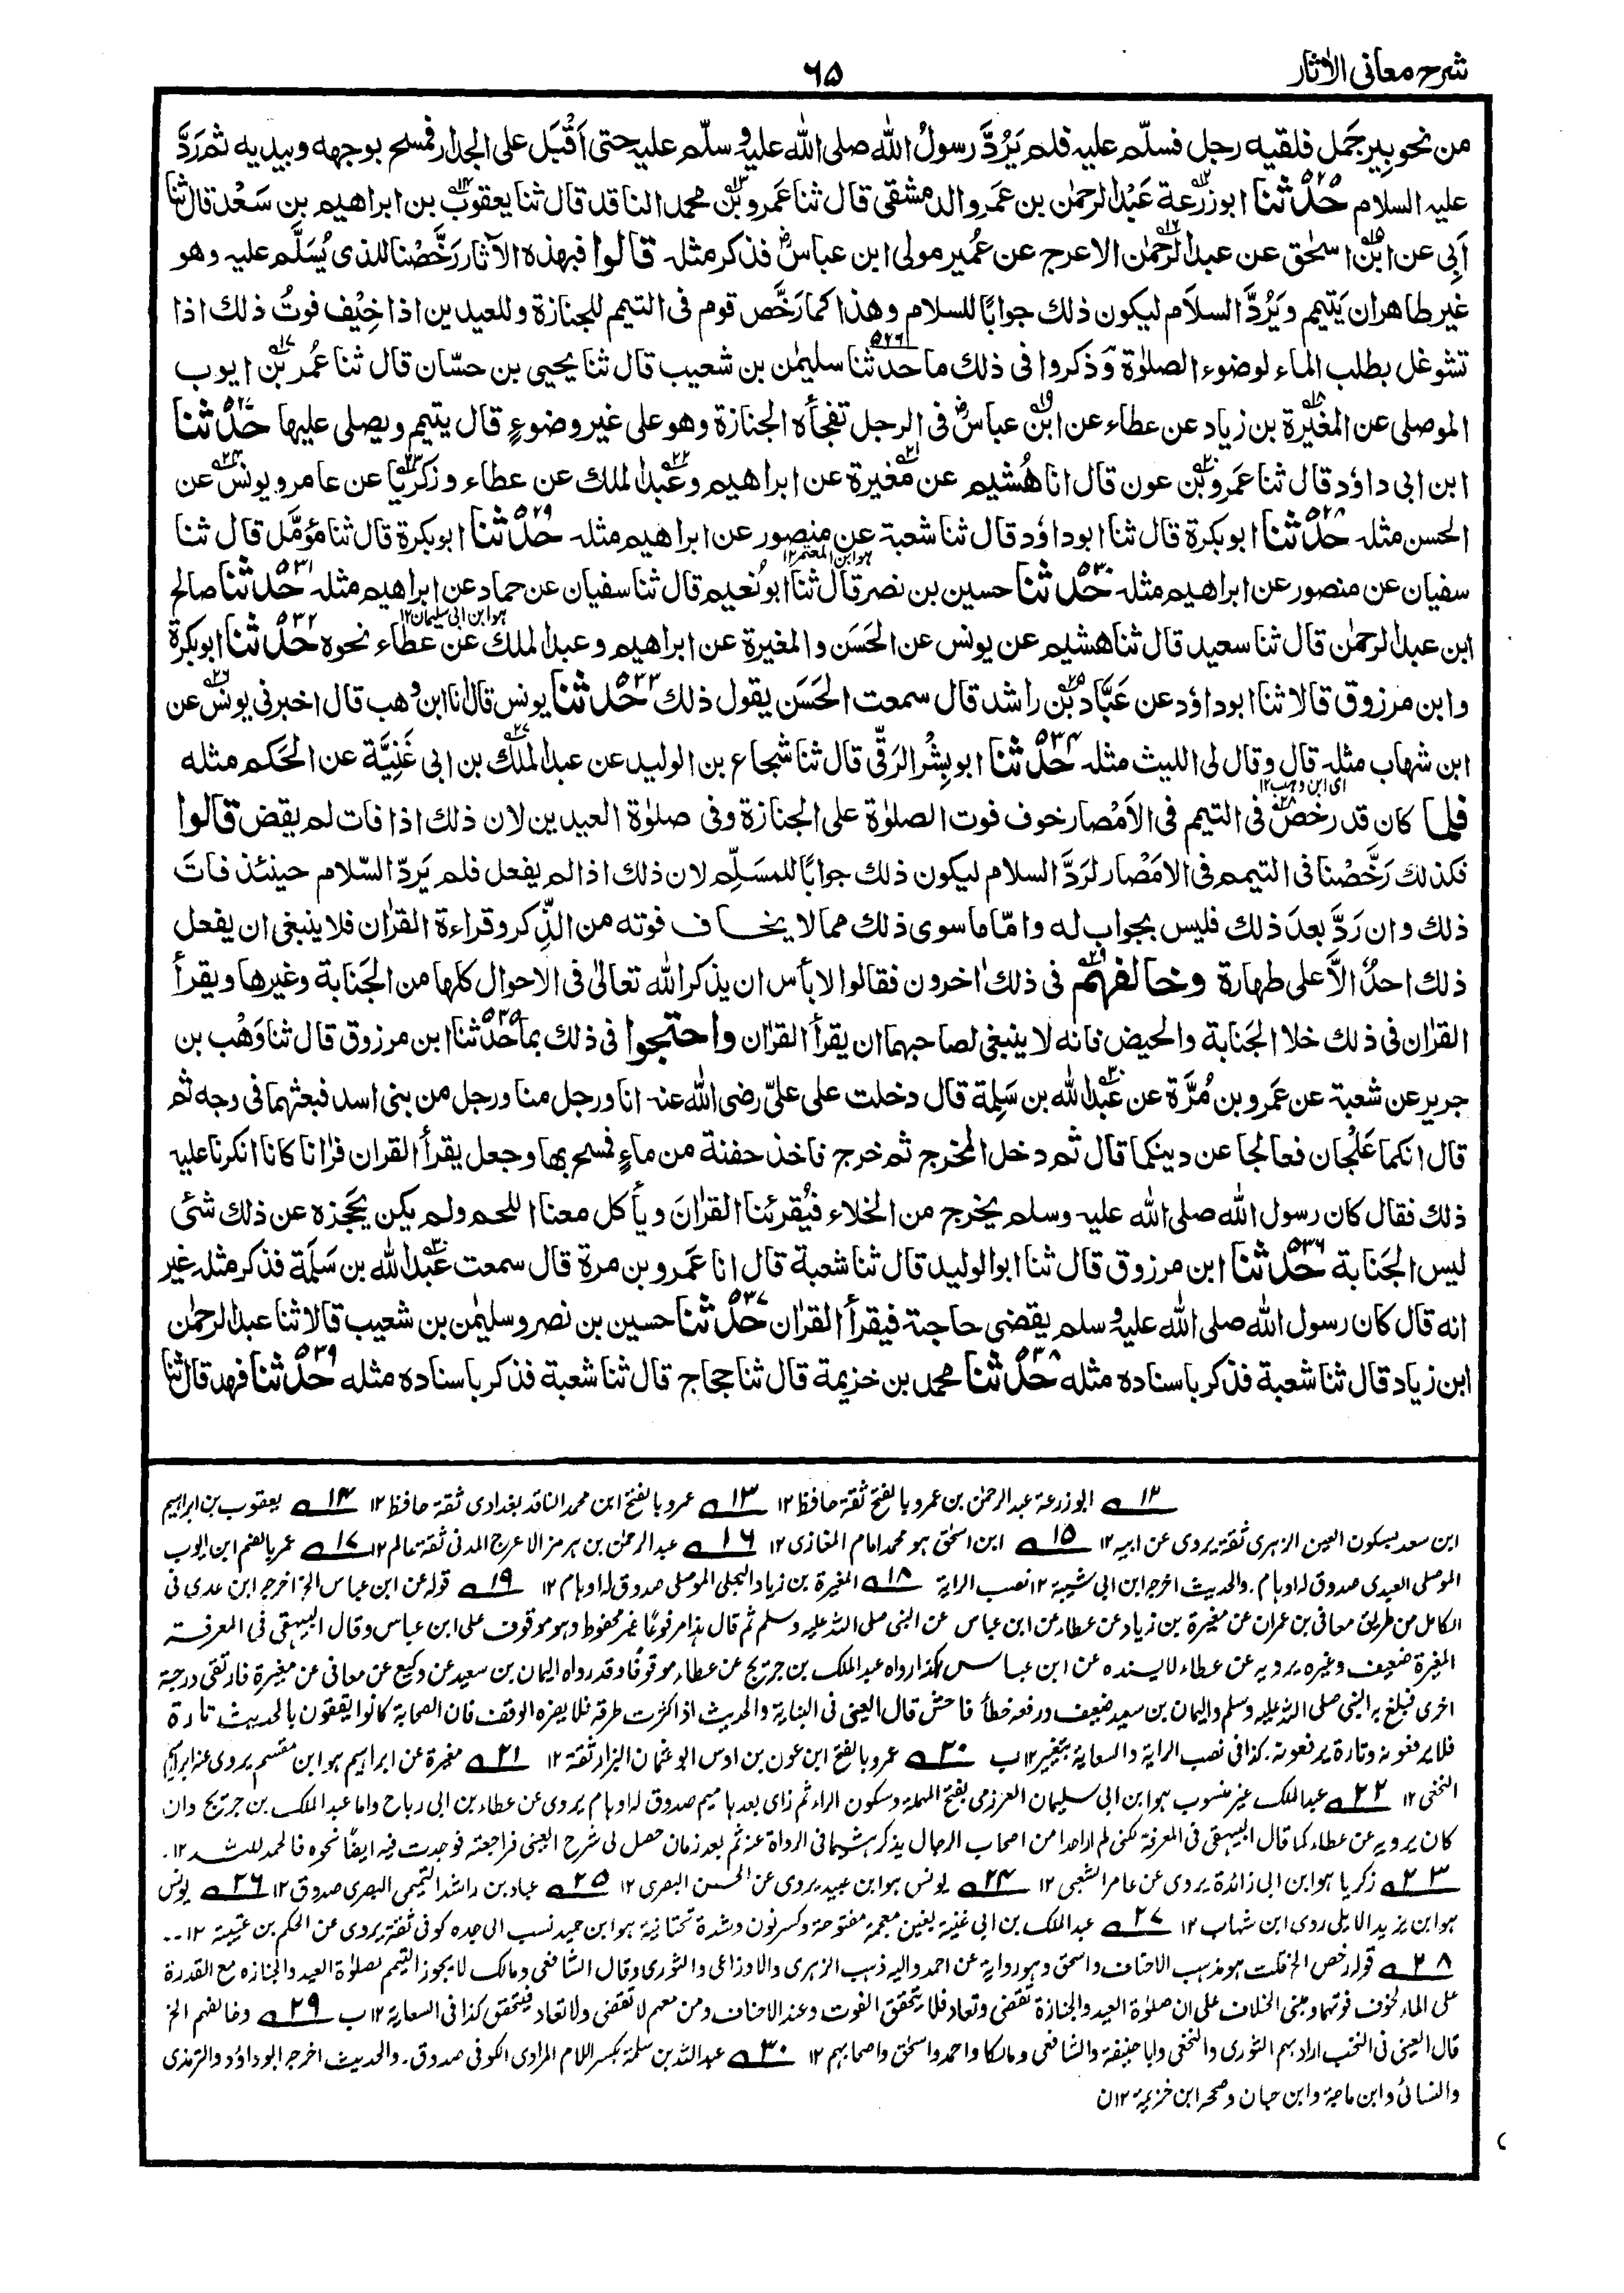 شرح معانی الاٰثار
۶۵
من نحو بیر جَمل فلقیه رجل فسلّم علیه فلم یَرُدَّ رسولُ الله صلی الله علیه وسلّم علیه حتی اَقْبَل علی الجدار فمسح بوجهه وبیدیه ثم رَدَّ
علیه السلام ۵۲۵ حدّثنا ابو زُرعة عَبْد الرحمٰن بن عمرو الدمشقی قال ثنا عَمرو بن محمد الناقد قال ثنا یعقوب بن ابراهیم بن سَعْد قال ثنا
اَبِی عن ابن اسحٰق عن عبد الرحمٰن الاعرج عن عُمیر مولی ابن عباسؓ فذکر مثله قالوا فبهذه الآثار رَخَّصْنا للذی یُسَلَّم علیه وهو
غیر طاهر ان یَتیمم ویَرُدَّ السلاَم لیکون ذلك جوابًا للسلام وهذا کما رَخَّص قوم فی التیمم للجنازة وللعیدین اذا خِیْف فوتُ ذلك اذا
تشوغل بطلب الماء لوضوء الصلوٰة وذکروا فی ذلك ما ۵۲۶ حدثنا سلیمٰن بن شعیب قال ثنا یحیی بن حسّان قال ثنا عُمر بن ایوب
الموصلی عن المغیرة بن زیاد عن عطاء عن ابن عباسؓ فی الرجل تفجأه الجنازة وهو علی غیر وضوءٍ قال یتیمم ویصلی علیها ۵۲۷ حدّثنا
ابن ابی داؤد قال ثنا عَمرو بن عون قال انا هُشیم عن مغیرة عن ابراهیم وعبد الملك عن عطاء وزکریا عن عامر ویونس عن
الحسن مثله ۵۲۸ حدّثنا ابو بکرة قال ثنا ابو داؤد قال ثنا شعبة عن منصور عن ابراهیم مثله ۵۲۹ حدّثنا ابو بکرة قال ثنا مؤمَّل قال ثنا
هو ابن المعتمر ۱۲
سفیان عن منصور عن ابراهیم مثله ۵۳۰ حدّثنا حسین بن نصر قال ثنا ابو نُعیم قال ثنا سفیان عن حماد عن ابراهیم مثله ۵۳۱ حدّثنا صالح
هو ابن ابی سلیمان ۱۲
ابن عبد الرحمٰن قال ثنا سعید قال ثنا هشیم عن یونس عن الحَسَن والمغیرة عن ابراهیم وعبد الملك عن عطاء نحوه ۵۳۲ حدّثنا ابو بکرة
وابن مرزوق قالا ثنا ابو داؤد عن عَبَّاد بن راشد قال سمعت الحَسَن یقول ذلك ۵۳۳ حدّثنا یونس قال انا ابن وُهب قال اخبرنی یونس عن
ابن شهاب مثله قال وقال لی اللیث مثله ۵۳۴ حدّثنا ابو بِشْر الرَقّی قال ثنا شجاع بن الولید عن عبد الملك بن ابی غَنِیَّة عن الحَکم مثله
ای ابن وهب ۱۲
فلما کان قد رخص فی التیمم فی الاَمْصار خوف فوت الصلوٰة علی الجنازة وفی صلوٰة العیدین لان ذلك اذا فات لم یقض قالوا
فکذلك رَخَّصْنا فی التیمم فی الامْصار لرَدَّ السلام لیکون ذلك جوابًا للمسَلِّم لان ذلك اذا لم یفعل فلم یَردّ السّلام حینئذ فاتَ
ذلك وان رَدَّ بعدَ ذلك فلیس بجواب له وامّا ما سوی ذلك مما لا یخاف فوته من الذِّکر وقراءة القراٰن فلا ینبغی ان یفعل
ذلك احدٌ الاَّ علی طهارة وخالفهم فی ذلك اٰخرون فقالوا لا بأس ان یذکر الله تعالیٰ فی الاحوال کلها من الجَنابة وغیرها ویقرأ
القراٰن فی ذلك خلا الجَنابة والحیض فانه لا ینبغی لصاحبهما ان یقرأ القراٰن واحتجوا فی ذلك بما ۵۳۵ حدّثنا ابن مرزوق قال ثنا وَهْب بن
جریر عن شعبة عن عَمرو بن مُرَّة عن عَبد الله بن سَلِمة قال دخلت علی علیّ رضی الله عنه انا ورجل منا ورجل من بنی اسد فبعثهما فی وجه ثم
قال انکما عَلْجان فعالجا عن دینکما قال ثم دخل المخرج ثم خرج فاخذ حفنة من ماءٍ فمسح بها وجعل یقرأ القران فراٰنا کانا انکرنا علیه
ذلك فقال کان رسول الله صلی الله علیه وسلم یخرج من الخلاء فیُقرئنا القراٰنَ ویأکل معنا اللحم ولم یکن یَحْجزه عن ذلك شئی
لیس الجَنابة ۵۳۶ حدّثنا ابن مرزوق قال ثنا ابو الولید قال ثنا شعبة قال انا عَمرو بن مرة قال سمعت عَبد الله بن سَلِمَة فذکر مثله غیر
انه قال کان رسول الله صلی الله علیه وسلم یقضی حاجته فیقرأ القراٰن ۵۳۷ حدّثنا حسین بن نصر وسلیمٰن بن شعیب قالا ثنا عبد الرحمٰن
ابن زیاد قال ثنا شعبة فذکر باسناده مثله ۵۳۸ حدّثنا محمد بن خزیمة قال ثنا حجاج قال ثنا شعبة فذکر باسناده مثله ۵۳۹ حدّثنا فهد قال ثنا
۱۲ ابو زرعة عبد الرحمٰن بن عمرو بالفتح ثقة حافظ ۱۲ ۱۳ عمرو بالفتح ابن محمد الناقد بغدادی ثقة حافظ ۱۲ ۱۴ یعقوب بن ابراهیم
ابن سعد بسکون العین الزهری ثقة یروی عن ابیه ۱۲ ۱۵ ابن اسحٰق هو محمد امام المغازی ۱۲ ۱۶ عبد الرحمٰن بن هرمز الاعرج المدنی ثقة عالم ۱۲ ۱۷ عمر بالضم ابن ایوب
الموصلی العبدی صدوق له اوهام۔ والحدیث اخرجه ابن ابی شیبة ۱۲ نصب الرایة ۱۸ المغیرة بن زیاد البجلی الموصلی صدوق له اوهام ۱۲ ۱۹ قوله عن ابن عباس الخ اخرجه ابن عدی فی
الکامل من طریق معافی بن عمران عن مغیرة بن زیاد عن عطاء عن ابن عباس عن النبی صلی الله علیه وسلم ثم قال هذا مرفوعًا غیر محفوظ وهو موقوف علی ابن عباس وقال البیهقی فی المعرفة
المغیرة ضعیف وغیره یرویه عن عطاء لا یسنده عن ابن عباس هکذا رواه عبد الملک بن جریج عن عطاء موقوفا وقد رواه الیمان بن سعید عن وکیع عن معافی عن مغیرة فارتقی درجة
اخری فبلغ به النبی صلی الله علیه وسلم والیمان بن سعید ضعیف ورفعه خطأ فاحش قال العینی فی البنایة والحدیث اذا کثرت طرقه فلا یضره الوقف فان الصحابة کانوا یقفون بالحدیث تارة
فلا یرفعونه وتارة یرفعونه۔ کذا فی نصب الرایة والسعایة بتغییر ۱۲ ب ۲۰ عمرو بالفتح ابن عون بن اوس ابو عثمان البزار ثقة ۱۲ ۲۱ مغیرة عن ابراهیم هو ابن مقسم یروی عن ابراهیم
النخعی ۱۲ ۲۲ عبد الملک غیر منسوب هو ابن ابی سلیمان العرزمی بفتح المهملة وسکون الراء ثم زای بعدها میم صدوق له اوهام یروی عن عطاء بن ابی رباح واما عبد الملک بن جریج وان
کان یرویه عن عطاء کما قال البیهقی فی المعرفة لکنی لم ار احدا من اصحاب الرجال یذکر هشیما فی الرواة عنه ثم بعد زمان حصل لی شرح العینی فراجعته فوجدت فیه ایضًا نحوه فالحمد لله ۱۲۔
۲۳ زکریا هو ابن ابی زائدة یروی عن عامر الشعبی ۱۲ ۲۴ یونس هو ابن عبید یروی عن الحسن البصری ۱۲ ۲۵ عباد بن راشد التمیمی البصری صدوق ۱۲ ۲۶ یونس
هو ابن یزید الایلی روی ابن شهاب ۱۲ ۲۷ عبد الملک بن ابی غنیة بغین معجمة مفتوحة وکسر نون وشدة تحتانیة هو ابن حمید نسب الی جده کوفی ثقة یروی عن الحکم بن عتیبة ۱۲۔۔
۲۸ قوله رخص الخ قلت هو مذهب الاحناف واسحق وهو روایة عن احمد والیه ذهب الزهری والاوزاعی والثوری وقال الشافعی ومالک لا یجوز التیمم لصلوٰة العید والجنازه مع القدرة
علی الماء لخوف فوتهما ومبنی الخلاف علی ان صلوٰة العید والجنازة تقضی وتعاد فلا یتحقق الفوت وعند الاحناف ومن معهم لا تقضی ولا تعاد فیتحقق کذا فی السعایة ۱۲ ب ۲۹ وخالفهم الخ
قال العینی فی النخب اراد بهم الثوری والنخعی وابا حنیفة والشافعی ومالکا واحمد واسحٰق واصحابهم ۱۲ ۳۰ عبد الله بن سلمة بکسر اللام المرادی الکوفی صدوق۔ والحدیث اخرجه ابو داؤد والترمذی
والنسائی وابن ماجة وابن حبان وصححه ابن خزیمة ۱۲ ن